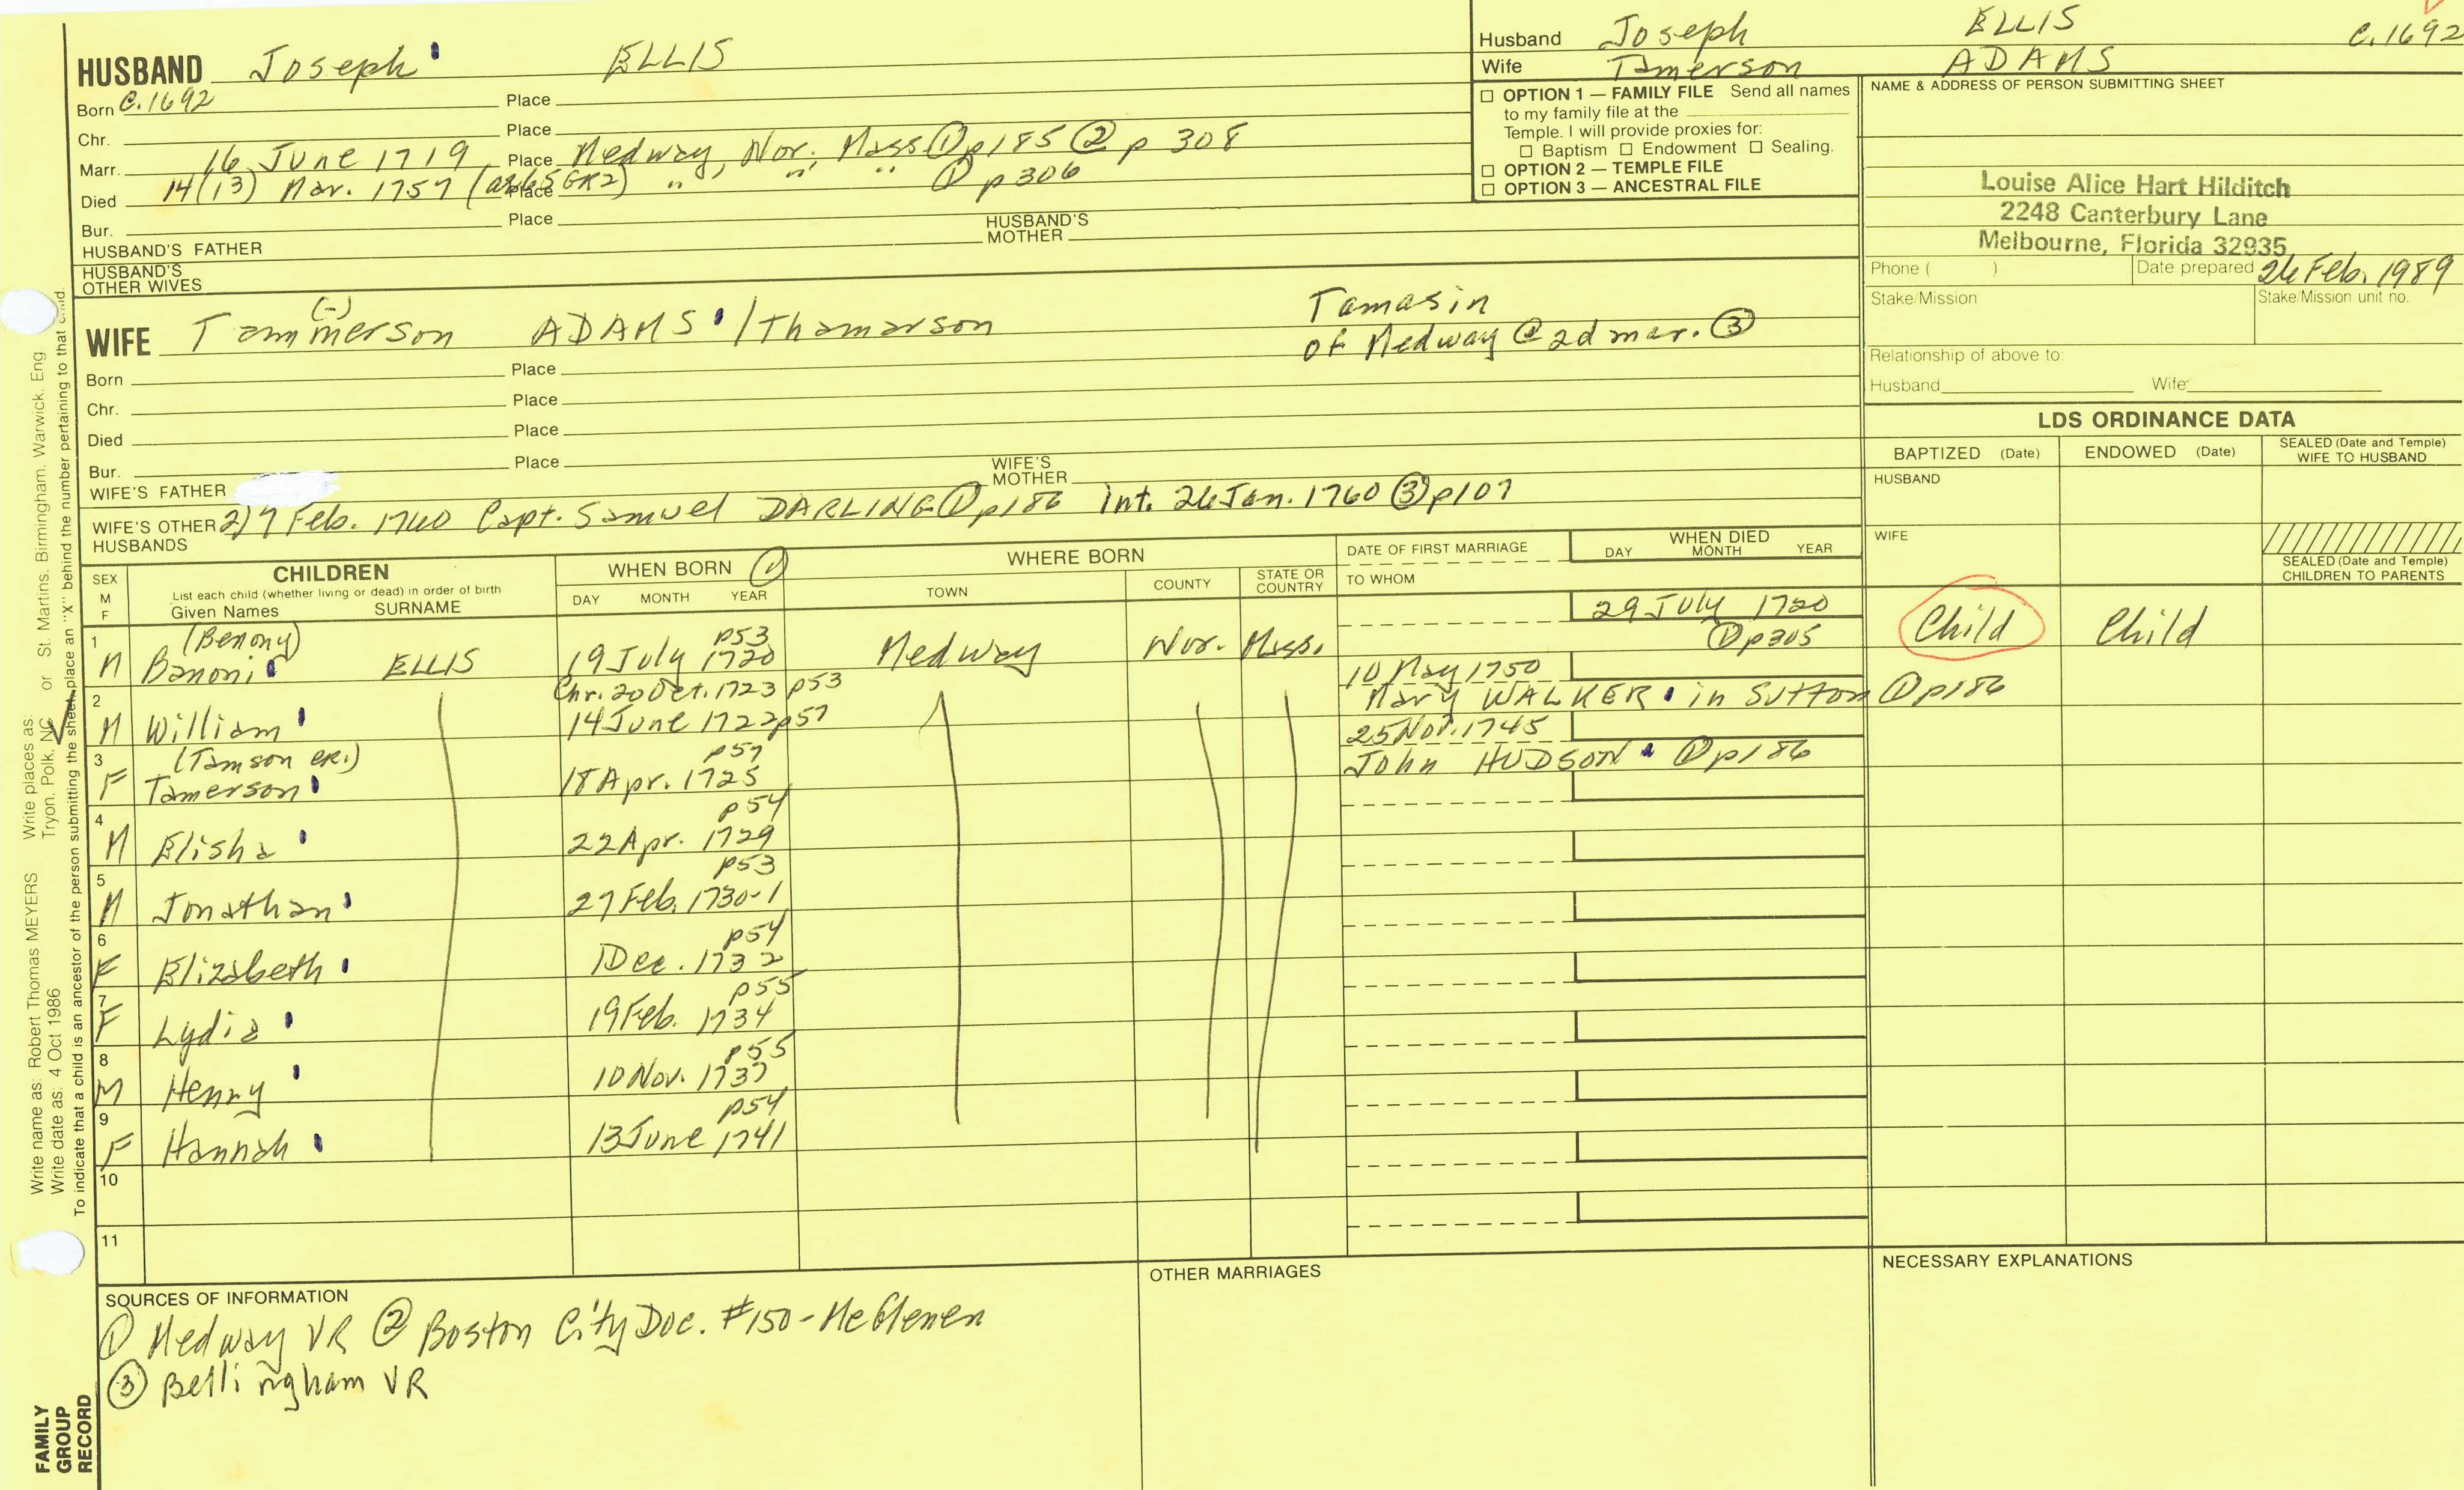 HUSBAND Joseph ELLIS
Born C.1692 Place
Chr. Place
Marr. 16 June 1719 Place Medway, Nor., Mass ① p185 ② p 308
Died 14(13) Mar. 1757 (ae 65 GR2) Place " " " ① p306
Bur. Place
HUSBAND'S FATHER HUSBAND'S MOTHER
HUSBAND'S OTHER WIVES
Husband Joseph ELLIS C.1692
Wife Tamerson ADAMS
☐ OPTION 1 — FAMILY FILE Send all names
to my family file at the
Temple. I will provide proxies for:
☐ Baptism ☐ Endowment ☐ Sealing.
☐ OPTION 2 — TEMPLE FILE
☐ OPTION 3 — ANCESTRAL FILE
NAME & ADDRESS OF PERSON SUBMITTING SHEET
Louise Alice Hart Hilditch
2248 Canterbury Lane
Melbourne, Florida 32935
Phone ( ) Date prepared 26 Feb. 1989
Stake/Mission Stake/Mission unit no.
Relationship of above to:
Husband Wife
(-)
WIFE Tammerson ADAMS /Thamarson
Tamasin
of Medway @ 2d mar. ③
Born Place
Chr. Place
Died Place
Bur. Place
WIFE'S FATHER WIFE'S MOTHER
WIFE'S OTHER HUSBANDS 2) 7 Feb. 1760 Capt. Samuel DARLING ① p186 int. 26 Jan. 1760 ③ p107
LDS ORDINANCE DATA
BAPTIZED (Date) ENDOWED (Date) SEALED (Date and Temple) WIFE TO HUSBAND
HUSBAND
WIFE
SEALED (Date and Temple) CHILDREN TO PARENTS
SEX M F
CHILDREN
List each child (whether living or dead) in order of birth
Given Names SURNAME
WHEN BORN ①
DAY MONTH YEAR
WHERE BORN
TOWN COUNTY STATE OR COUNTRY
DATE OF FIRST MARRIAGE
TO WHOM
WHEN DIED
DAY MONTH YEAR
1 (Benony) p53 29 July 1720
M Banoni ELLIS 19 July 1720 Medway Nor. Mass. ① p305 Child Child
2 Chr. 20 Oct. 1723 p53 10 May 1750
M William 14 June 1722 p57 Mary WALKER in Sutton ① p186
3 (Tamson CR.) p57 25 Nov. 1745
F Tamerson 18 Apr. 1725 John HUDSON ① p186
4 p54
M Elisha 22 Apr. 1729
5 p53
M Jonathan 27 Feb. 1730-1
6 p54
F Elizabeth 1 Dec. 1732
7 p55
F Lydia 19 Feb. 1734
8 p55
M Henry 10 Nov. 1737
9 p54
F Hannah 13 June 1741
10
11
SOURCES OF INFORMATION
① Medway VR ② Boston City Doc. #150-McGlenen
③ Bellingham VR
OTHER MARRIAGES
NECESSARY EXPLANATIONS
Write name as: Robert Thomas MEYERS Write places as: or St. Martins, Birmingham, Warwick, Eng
Write date as: 4 Oct 1986 Tryon, Polk, NC
To indicate that a child is an ancestor of the person submitting the sheet, place an "X" behind the number pertaining to that child.
FAMILY
GROUP
RECORD